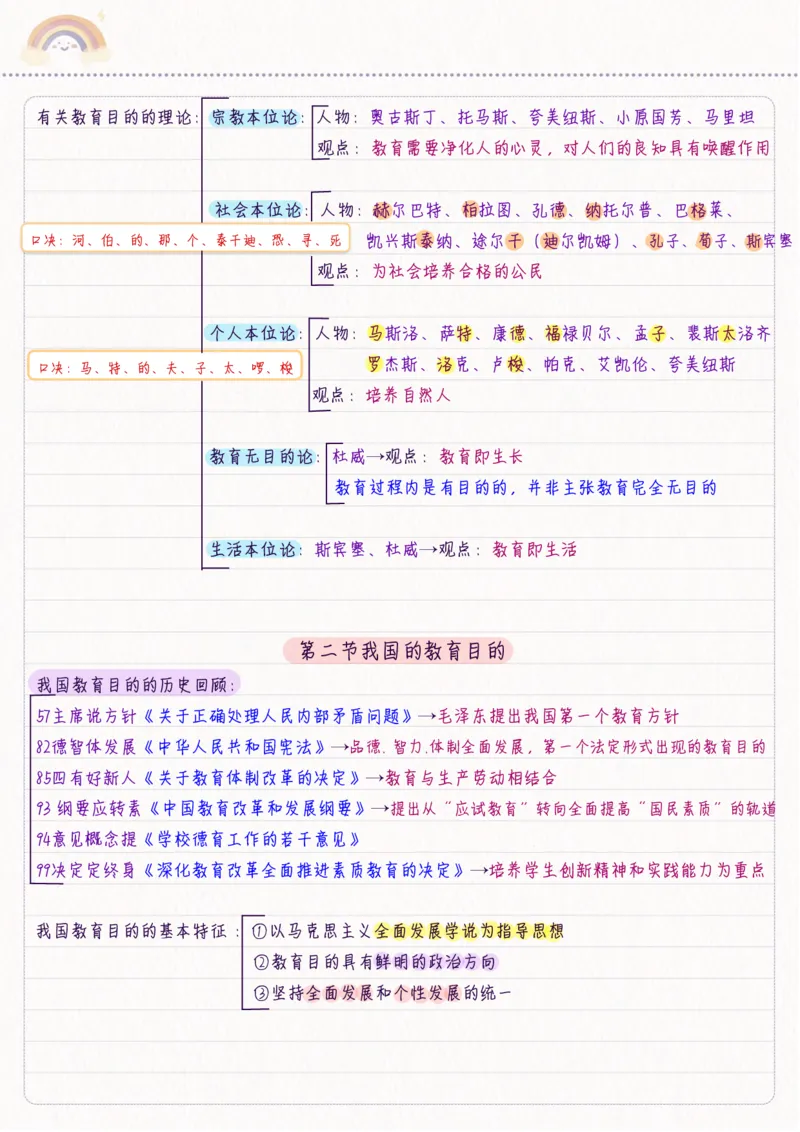 有关教育目的的理论：宗教本位论：人物：奥古斯丁、托马斯、夸美纽斯、小原国芳、马里坦
观点：教育需要净化人的心灵，对人们的良知具有唤醒作用
社会本位论：人物：赫尔巴特、柏拉图、孔德、纳托尔普、巴格莱、
口决：河、伯、的、那、个、泰干迪、恐、寻、死
凯兴斯泰纳、途尔干（迪尔凯姆）、孔子、荀子、斯宾塞
观点：为社会培养合格的公民
个人本位论：人物：马斯洛、萨特、康德、福禄贝尔、孟子、裴斯太洛齐
口决：马、特、的、夫、子、太、啰、梭
罗杰斯、洛克、卢梭、帕克、艾凯伦、夸美纽斯
观点：培养自然人
教育无目的论：杜威→观点：教育即生长
教育过程内是有目的的，并非主张教育完全无目的
生活本位论：斯宾塞、杜威→观点：教育即生活
第二节我国的教育目的
我国教育目的的历史回顾：
57主席说方针《关于正确处理人民内部矛盾问题》→毛泽东提出我国第一个教育方针
82德智体发展《中华人民共和国宪法》→品德.智力.体制全面发展，第一个法定形式出现的教育目的
85四有好新人《关于教育体制改革的决定》→教育与生产劳动相结合
93 纲要应转素《中国教育改革和发展纲要》→提出从“应试教育”转向全面提高“国民素质”的轨道
94意见概念提《学校德育工作的若干意见》
99决定定终身《深化教育改革全面推进素质教育的决定》→培养学生创新精神和实践能力为重点
我国教育目的的基本特征：①以马克思主义全面发展学说为指导思想
②教育目的具有鲜明的政治方向
③坚持全面发展和个性发展的统一